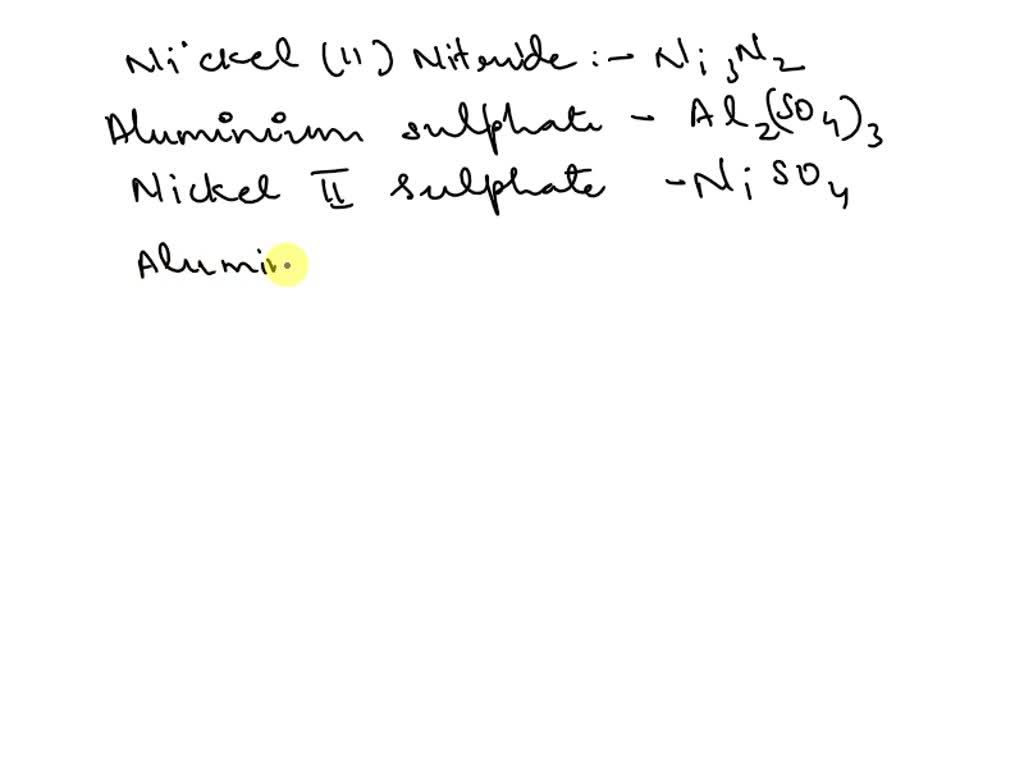 Nickel (II) Nitride :- Ni₃N₂
Aluminium sulphate - Al₂(SO₄)₃
Nickel II sulphate - NiSO₄
Alumin